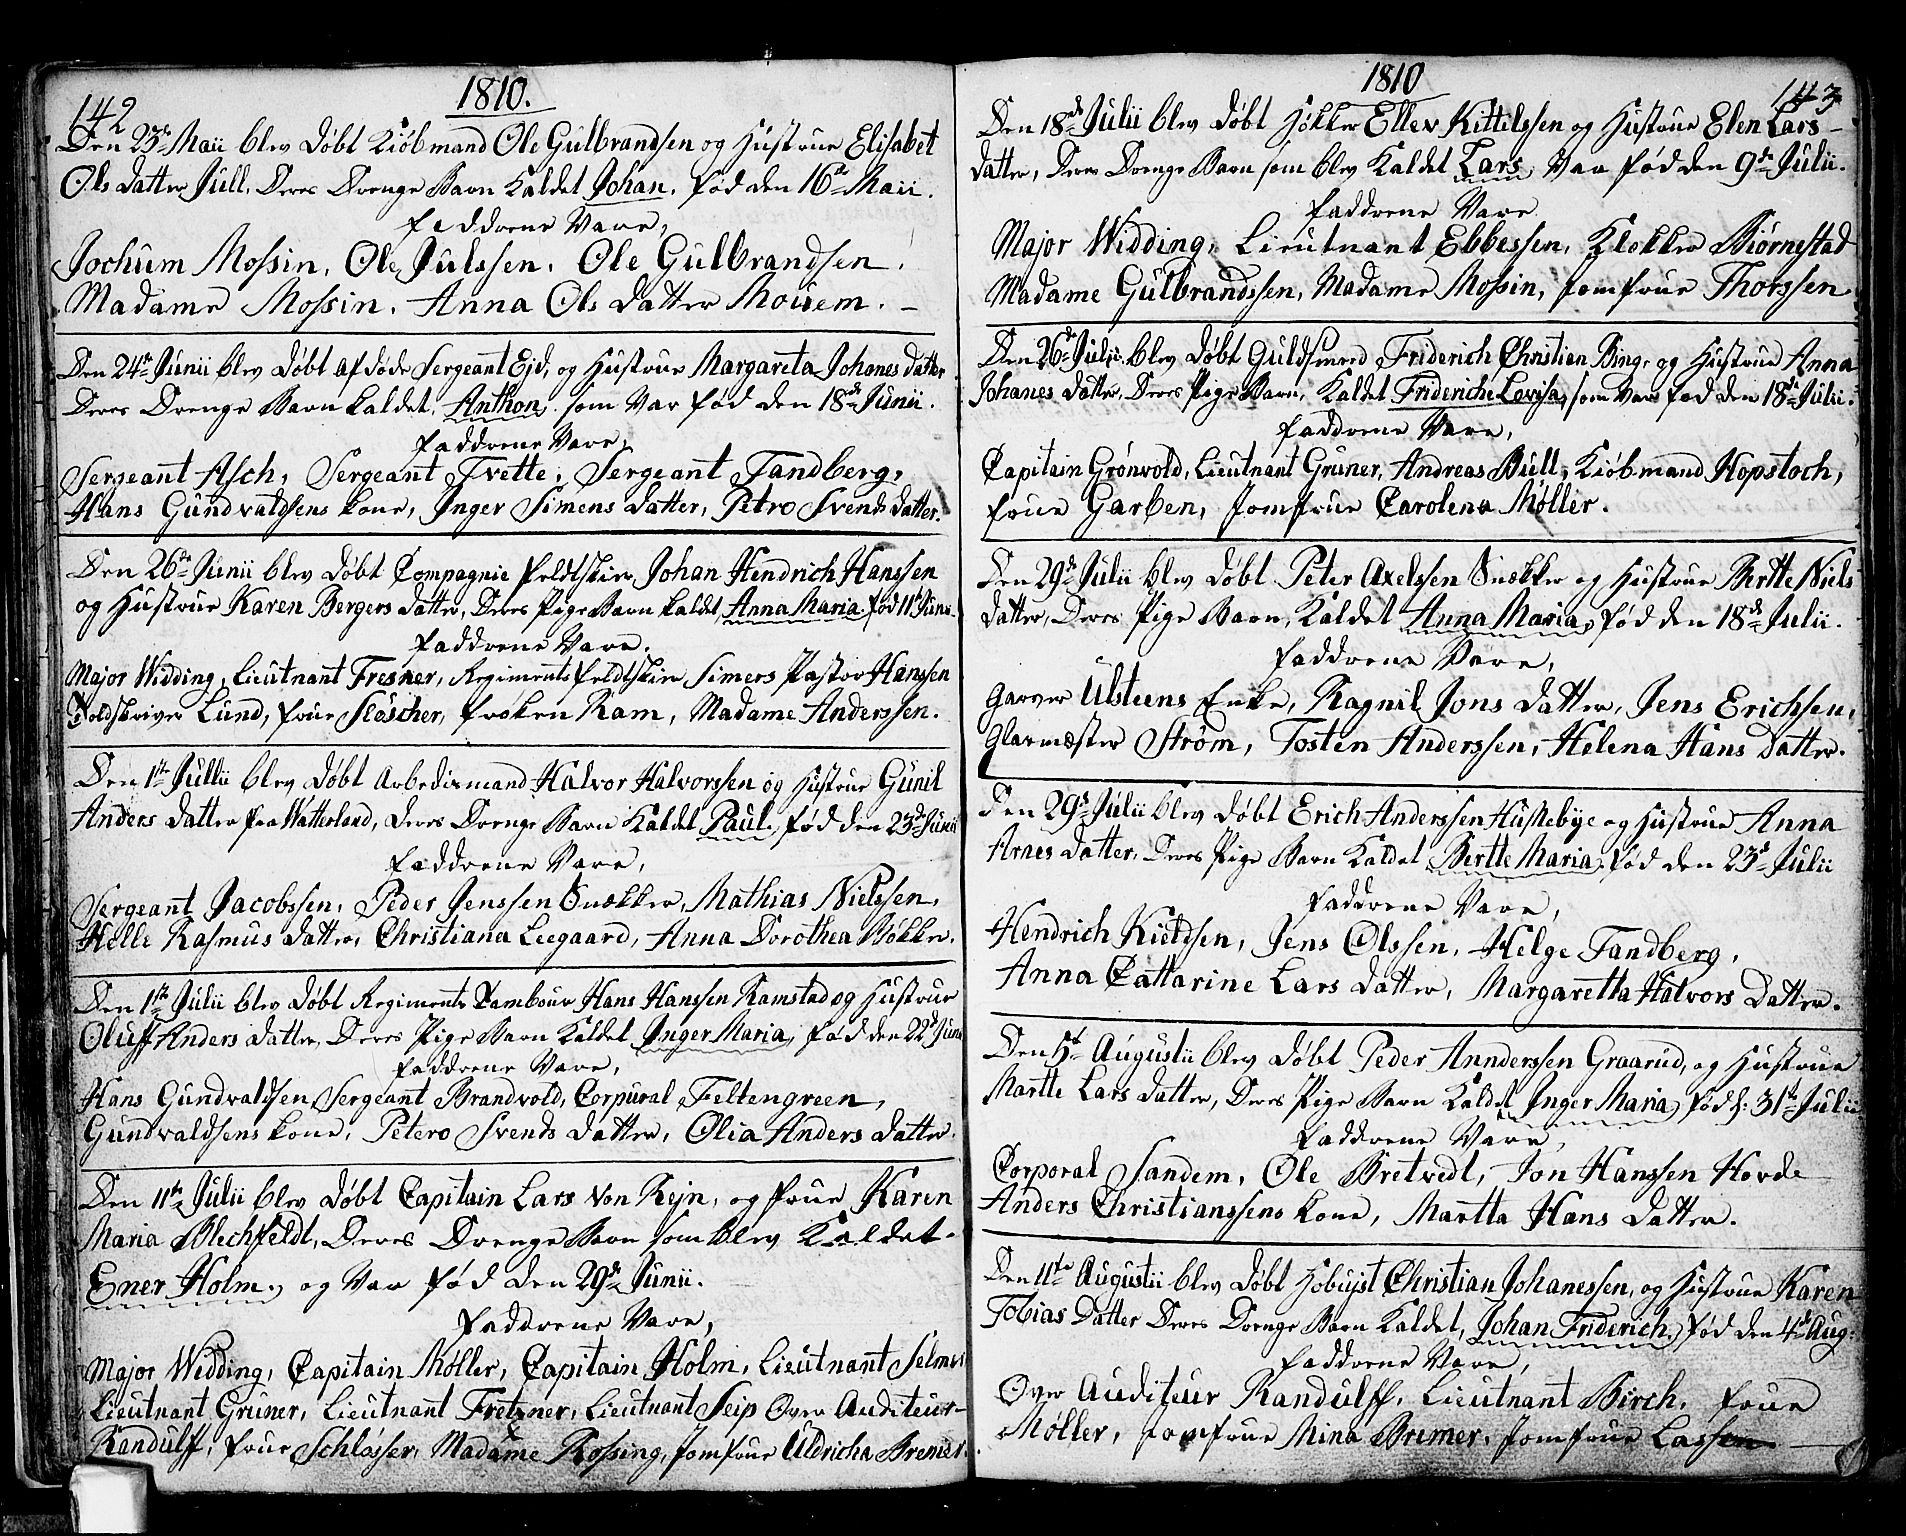 142
1810.
Den 23de Maii blev døbt Kiöbmand Ole Gulbrandsen og Hustrue Elisabet
Ols datter Jull, Deres Drenge Barn kaldet Johan, fød den 16de Maii.
Faddrene Vare,
Jochum Mossin, Ole Julssen, Ole Gulbrandsen,
Madame Mossin, Anna Ols datter Mousem. –
Den 24de Junii blev døbt afdøde Sergeant Ejd, og Hustrue Margareta Johanes datter
Deres Drenge Barn kaldet, Anthon, som Var fød den 18de Junii.
Faddrene Vare,
Sergeant Asch, Sergeant Tvette, Sergeant Tandberg,
Hans Gundvaldsens kone, Inger Simens datter, Petro Svends datter.
Den 26de Junii blev døbt Compagnie feldtskier Johan Hendrich Hanssen
og Hustrue Karen Bergers datter, Deres Pige Barn kaldet, Anna Maria, fød 11te Junii.
Faddrene Vare.
Major Widding, Lieutnant Fresner, Regiments feldtskier Simers Pastor Hanssen
Toldskriver Lund, frue Slöscher, frøken Ram, Madame Anderssen.
Den 1te Julii blev døbt Arbeidsmand Halvor Halvorssen og Hustrue Gunil
Anders datter fra Watterland, deres Drenge Barn kaldet Paul, fød den 23de Junii
Faddrene Vare,
Sergeant Jacobssen, Peder Jenssen Snækker, Mathias Nielssen,
Helle Rasmus datter, Christiana Leegaard, Anna Dorothea Bökker.
Den 1te Julii blev døbt Regiments Tambour Hans Hanssen Ramstad og Hustrue
Oluff Anders datter, Deres Pige Barn kaldet Inger Maria, fød den 22d Junii
Faddrene Vare,
Hans Gundvaldsen, Sergeant Brandvold, Corpural Feltengreen,
Gundvaldsens kone, Petero Svends datter, Olia Anders datter.
Den 11te Julii blev døbt Capitain Lars Von Rejn, og frue Karen
Maria Blechfeldt, Deres Drenge Barn som blev Kaldet
Ener Holm, og Var fød den 29de Junii.
Faddrene Vare,
Major Widding, Capitain Møller, Capitain Holm, Lieutnant Selmer
Lieutnant Gruner, Lieutnant Fretzner, Lieutnant Seip Over Auditeur
Randulff, frue Schlösser, Madame Rossing, Jomfrue Uldricha Bremer.
1810
143
Den 18de Julii blev døbt Høkker Ellev Kittilssen og Hustrue Elen Lars
datter, Deres Drenge Barn som blev kaldet Lars, Var fød den 9de Julii.
Faddrene Vare
Major Widding, Lieutnant Ebbessen, Klokker Biørnestad
Madame Gulbrandssen, Madame Mossin, Jomfrue Thorssen
Den 26de Julii blev døbt Guldsmed Friderich Christian Bing, og Hustrue Anna
Johanes datter, Deres Pige Barn, kaldet Friderichè Lovisa, som Var fød den 18de Julii.
Faddrene Vare,
Capitain Grönvold, Lieutnant Gruner, Andreas Bull, Kiöbmand Hopstoch,
frue Garben, Jomfrue Carolena Møller.
Den 29de Julii blev døbt Peter Axelssen Snækker og Hustrue Bertte Niels
datter, Deres Pige Barn, kaldet Anna Maria, fød den 18de Julii.
Faddrene Vare,
Garver Ulsteens Enke, Ragnil Jons datter, Jens Erichsen,
Glarmæster Strøm, Tosten Anderssen, Helena Hans datter.
Den 29de Julii blev døbt Erich Anderssen Hustebÿe og Hustrue Anna
Arnes datter, Deres Pige Barn kaldet Bertte Maria, fød den 23d Julii
Faddrene Vare,
Hendrich Kieldsen, Jens Olssen, Helge Tandberg,
Anna Cattarine Lars datter, Margaretta Halvors datter.
Den 5te Augustii blev døbt Peder Annderssen Graarud, og Hustrue
Martte Lars datter, Deres Pige Barn kaldet Inger Maria, fød d: 31te Julii
Faddrene Vare,
Corporal Sandem, Ole Bretvedt, Jon Hanssen Horde
Anders Christianssens kone, Martta Hans datter.
Den 11te Augustii blev døbt Hoboist Christian Johanessen, og Hustrue Karen
Tobias datter Deres Drenge Barn kaldet, Johan Friderich, fød den 4de Aug:
Faddrene Vare,
Over Auditeur Randulff, Lieutnant Birch, frue
Møller, Jomfrue Mina Bremer, Jomfrue Lassen